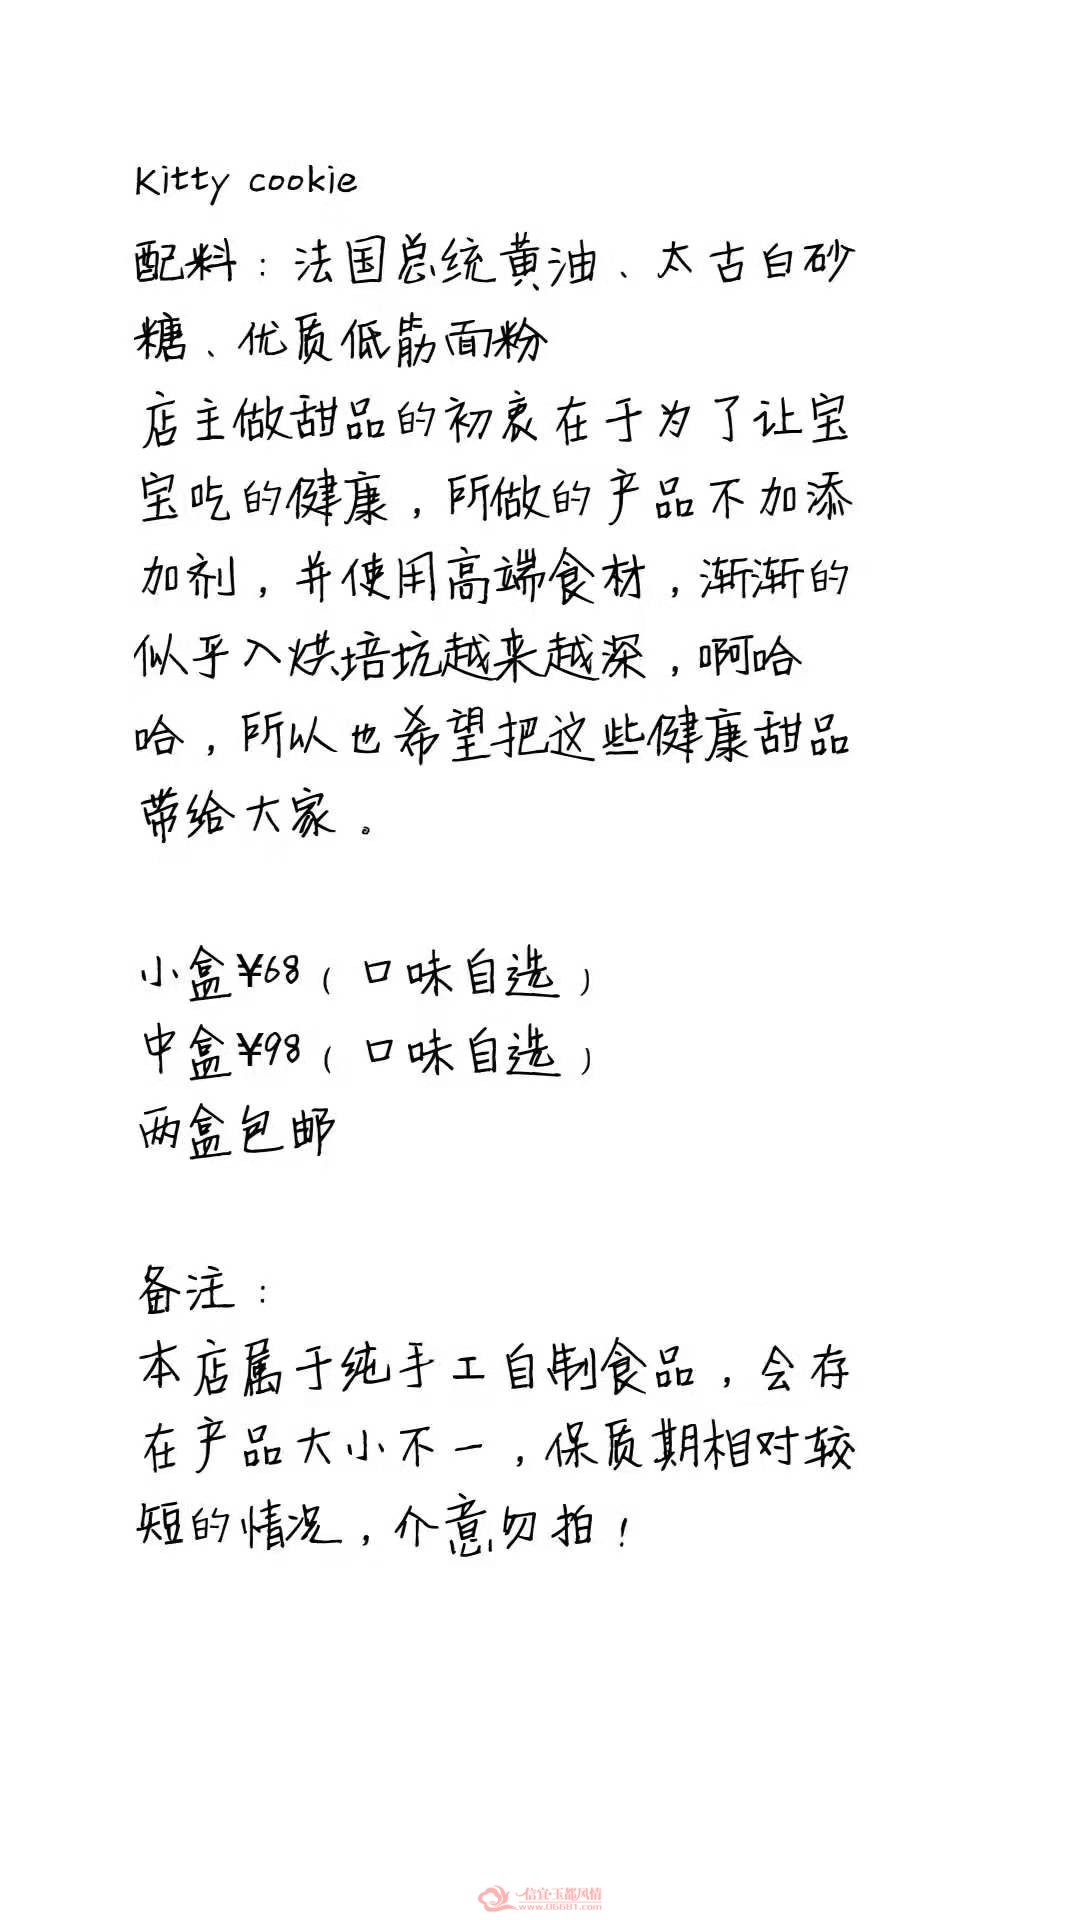 Kitty cookie
配料：法国总统黄油、太古白砂
糖、优质低筋面粉
店主做甜品的初衷在于为了让宝
宝吃的健康，所做的产品不加添
加剂，并使用高端食材，渐渐的
似乎入烘培坑越来越深，啊哈
哈，所以也希望把这些健康甜品
带给大家。
小盒¥68（口味自选）
中盒¥98（口味自选）
两盒包邮
备注：
本店属于纯手工自制食品，会存
在产品大小不一，保质期相对较
短的情况，介意勿拍！
信宜·玉都风情
www.06681.com